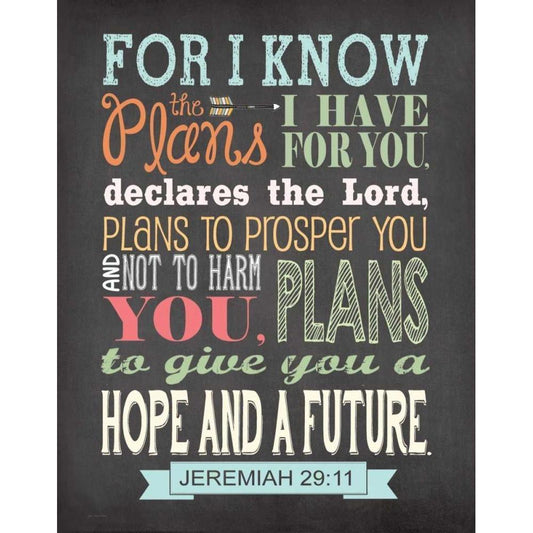 FOR I KNOW
the Plans I HAVE FOR YOU,
declares the Lord,
PLANS TO PROSPER YOU
AND NOT TO HARM
YOU, PLANS
to give you a
HOPE AND A FUTURE.
JEREMIAH 29:11